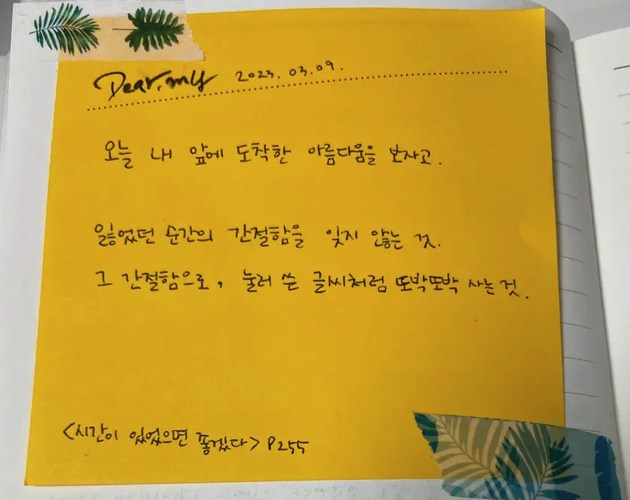 Dear. my 2023. 03. 09.
오늘 내 앞에 도착한 아름다움을 보자고.
잃었던 순간의 간절함을 잊지 않는 것.
그 간절함으로, 눌러 쓴 글씨처럼 또박또박 사는 것.
<시간이 있었으면 좋겠다> P255